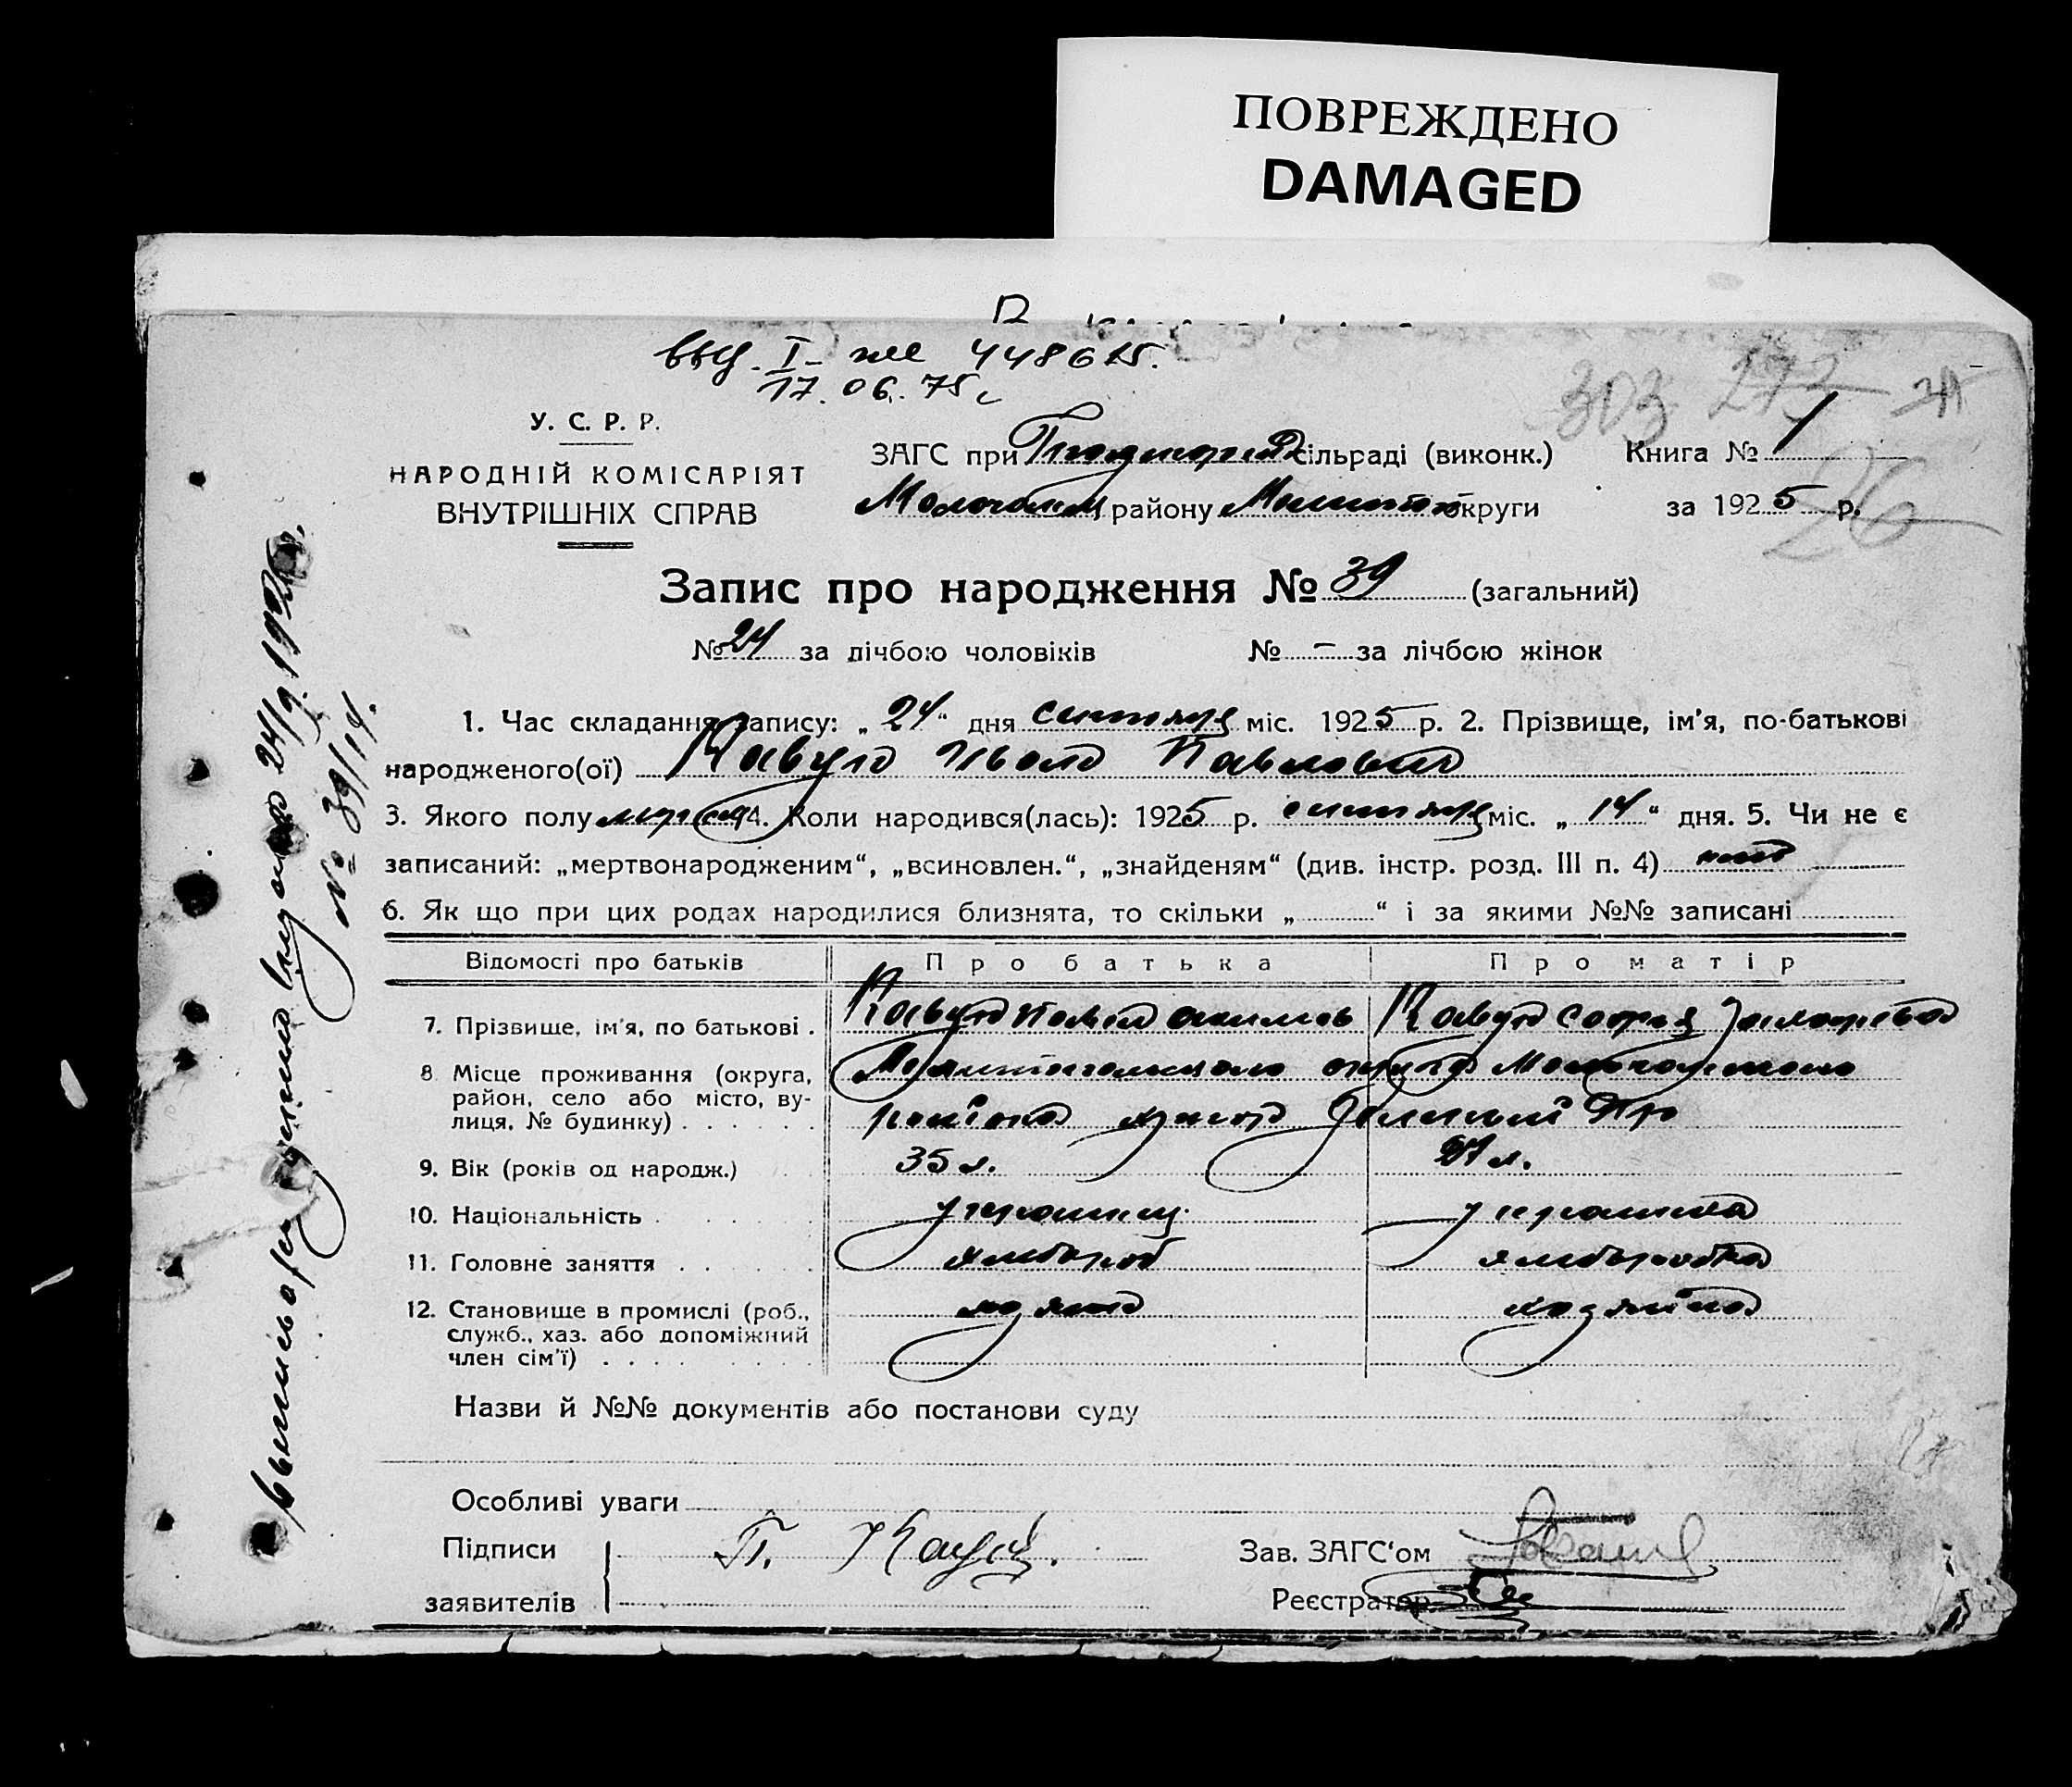 ПОВРЕЖДЕНО
DAMAGED
выд. I- же 448615.
17.06.75г
303 273
26
У. С. Р. Р.
НАРОДНІЙ КОМІСАРІЯТ
ВНУТРІШНІХ СПРАВ
ЗАГС при сільраді (виконк.) Книга № 1
району округи за 1925 р.
Запис про народження № 39 (загальний)
№ 24 за лічбою чоловіків № - за лічбою жінок
1. Час складання запису: „24“ дня сентября міс. 1925 р. 2. Прізвище, ім'я, по-батькові
народженого(ої) Кавун Иван Павлович
3. Якого полу 4. Коли народився(лась): 1925 р. сентября міс. „14“ дня. 5. Чи не є
записаний: „мертвонародженим“, „всиновлен.“, „знайденям“ (див. інстр. розд. III п. 4) нет
6. Як що при цих родах народилися близнята, то скільки „ “ і за якими №№ записані
Відомості про батьків Про батька Про матір
7. Прізвище, ім'я, по батькові . Кавун Павел Кавун Софья
8. Місце проживання (округа,
район, село або місто, ву-
лиця, № будинку) района хутор Зеленый
9. Вік (років од народж.) 35 л. 27 л.
10. Національність украинец украинка
11. Головне заняття хлебороб хлеборобка
12. Становище в промислі (роб.,
служб., хаз. або допоміжний
член сім'ї) хозяин хозяйка
Назви й №№ документів або постанови суду
Особливі уваги
Підписи
заявителів
П. Кавун.
Зав. ЗАГС'ом
Реєстратор
24/9.1925г.
№ 39/14.